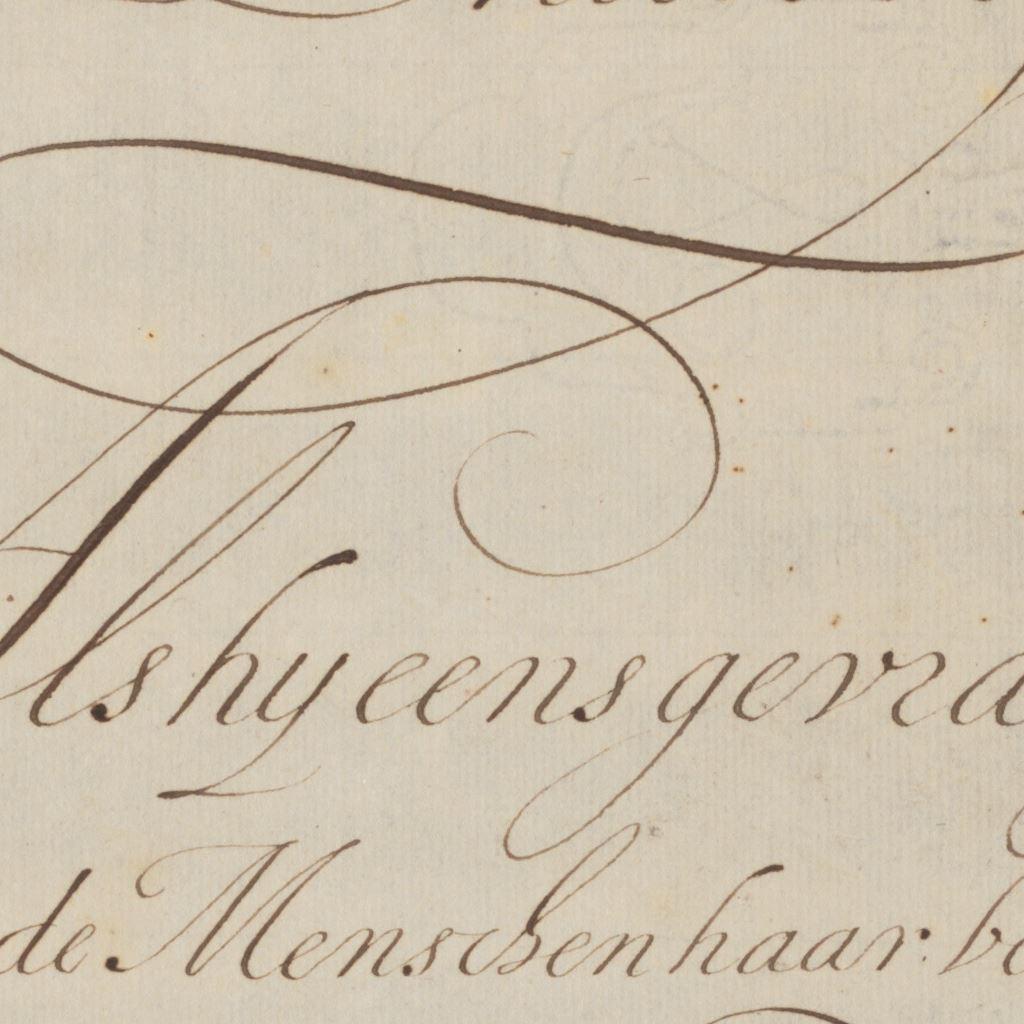 Als hy eens gevra
de Menschen haar be